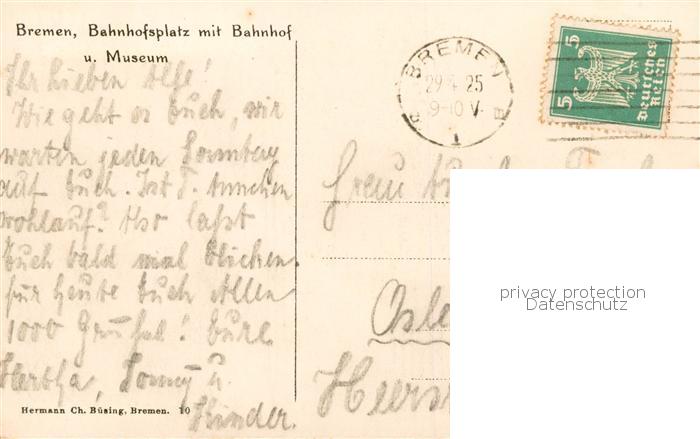 Bremen, Bahnhofsplatz mit Bahnhof
u. Museum
Ihr lieben Alle!
Wie geht es Euch, wir
warten jeden Sonntag
auf Euch. Ist T. Annchen
wohlauf? Also laßt
Euch bald mal blicken
für heute Euch Allen
1000 Grüße! Eure
Hertha, Sonny u.
Kinder.
Hermann Ch. Büsing, Bremen. 10
BREMEN
29 4 25
9-10 V.
1
5
5
Deutsches
Reich
Frau
Heers
privacy protection
Datenschutz